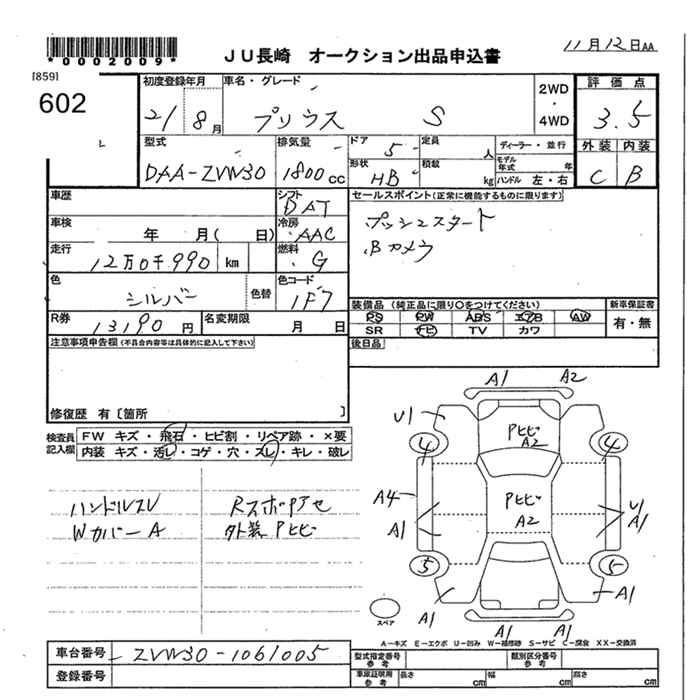 *0002009*
JU長崎 オークション出品申込書
11月12日AA
[859]
602
L
初度登録年月
21 8月
車名・グレード
プリウス S
2WD
・
4WD
評価点
3.5
外装 内装
C B
型式
DAA-ZVW30
排気量
1800cc
ドア
5
定員
人
形状
HB
積載
kg
ディーラー・並行
モデル年式 年
ハンドル 左・右
車歴
シフト
DAT
車検
年 月( 日)
冷房
AAC
走行
12万0千990 km
燃料
G
色
シルバー
色替
色コード
1F7
R券
13190円
名変期限
月 日
セールスポイント(正常に機能するものに限ります)
プッシュスタート
Bカメラ
装備品(純正品に限り○をつけてください)
PS PW ABS エアB AW
SR ナビ TV カワ
新車保証書
有・無
後日品
注意事項申告欄(不具合内容等は具体的に記入して下さい)
修復歴 有〔箇所 〕
検査員記入欄
FW キズ・飛石・ヒビ割・リペア跡・×要
内装 キズ・汚レ・コゲ・穴・スレ・キレ・破レ
ハンドルスレ
WカバーA
外装Pヒビ
A1 A2
U1
PヒビA2
4 4
A4
PヒビA2
A1
U1
A1
5 5
A1 A1
A1 A1
スペア
A−キズ E−エクボ U−凹み W−補修跡 S−サビ C−腐食 XX−交換済
車台番号
ZVW30-1061005
登録番号
型式指定番号
参考
類別区分番号
参考
車庫証明用
参考
長さ cm 幅 cm 高さ cm